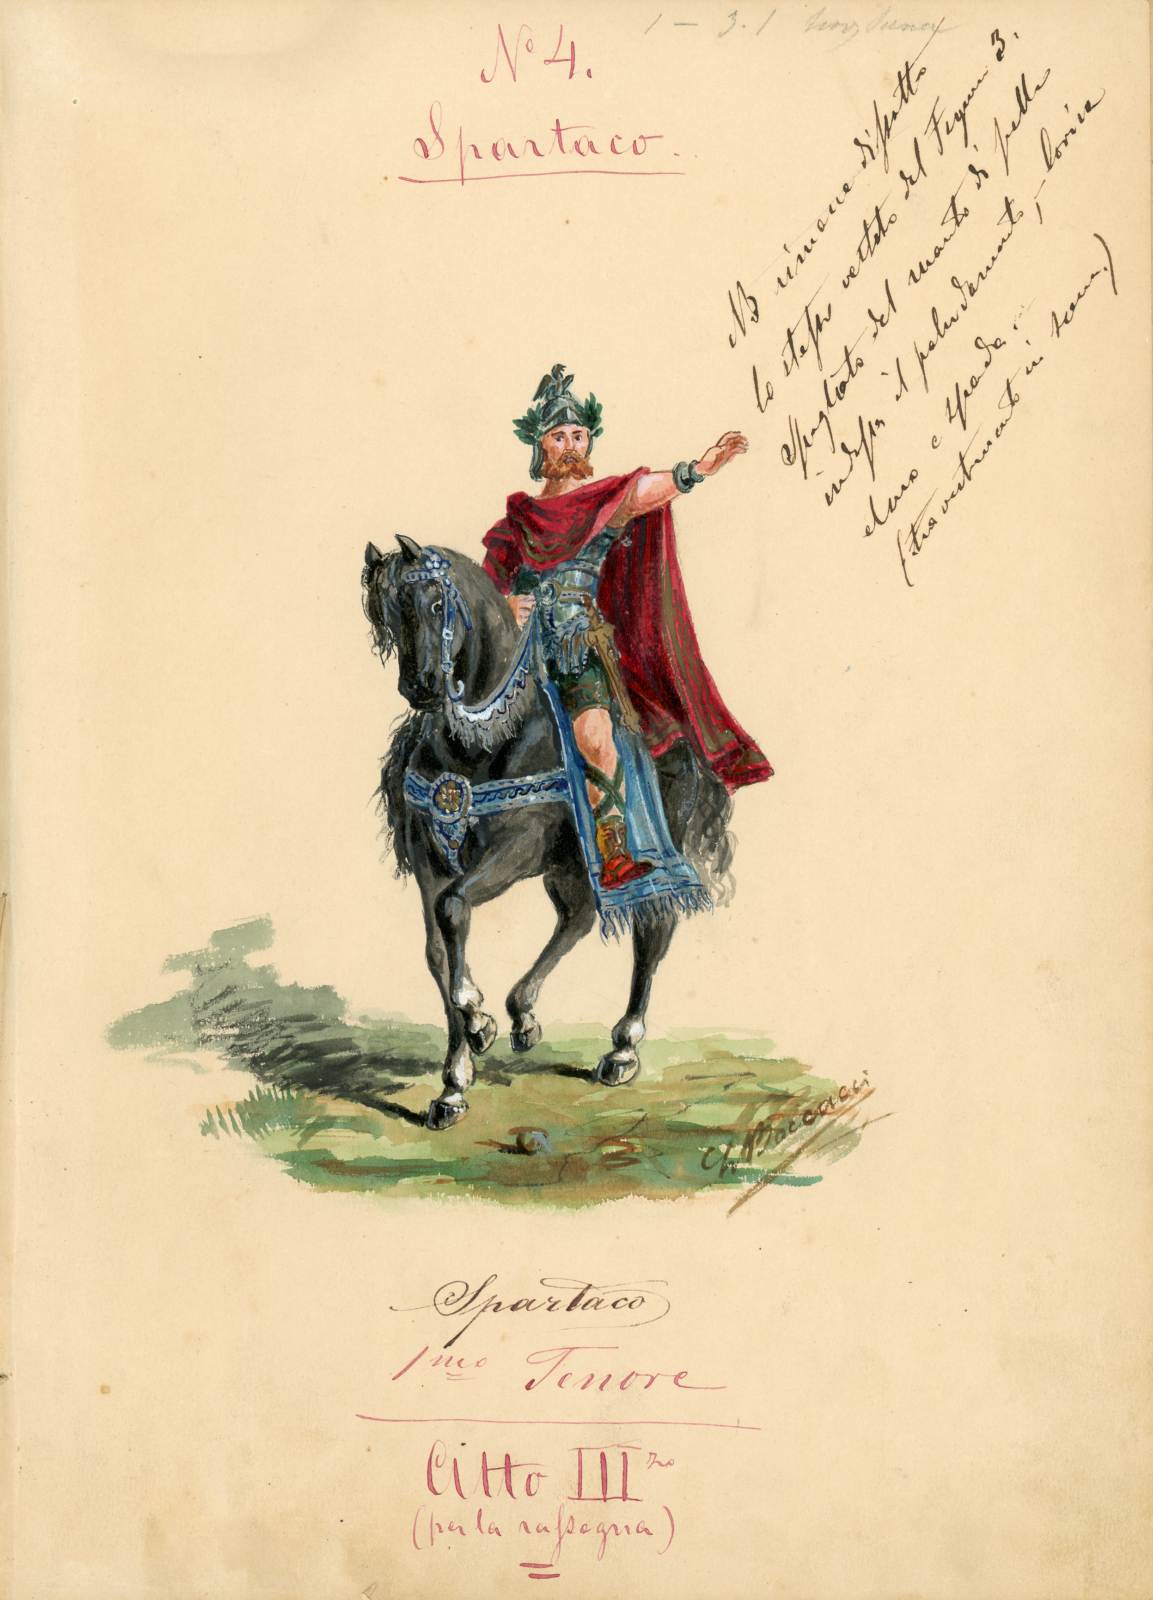 1 – 3.1
Nº 4.
Spartaco.
NB rimane disotto
lo stesso vestito del Figurino 3.
Spogliato del manto di pelle
indossa il paludamento, lorica
elmo e spada
(travestimento in scena.)
Ch Boccacci
Spartaco
1mo Tenore
Atto IIIzo
(per la rassegna)